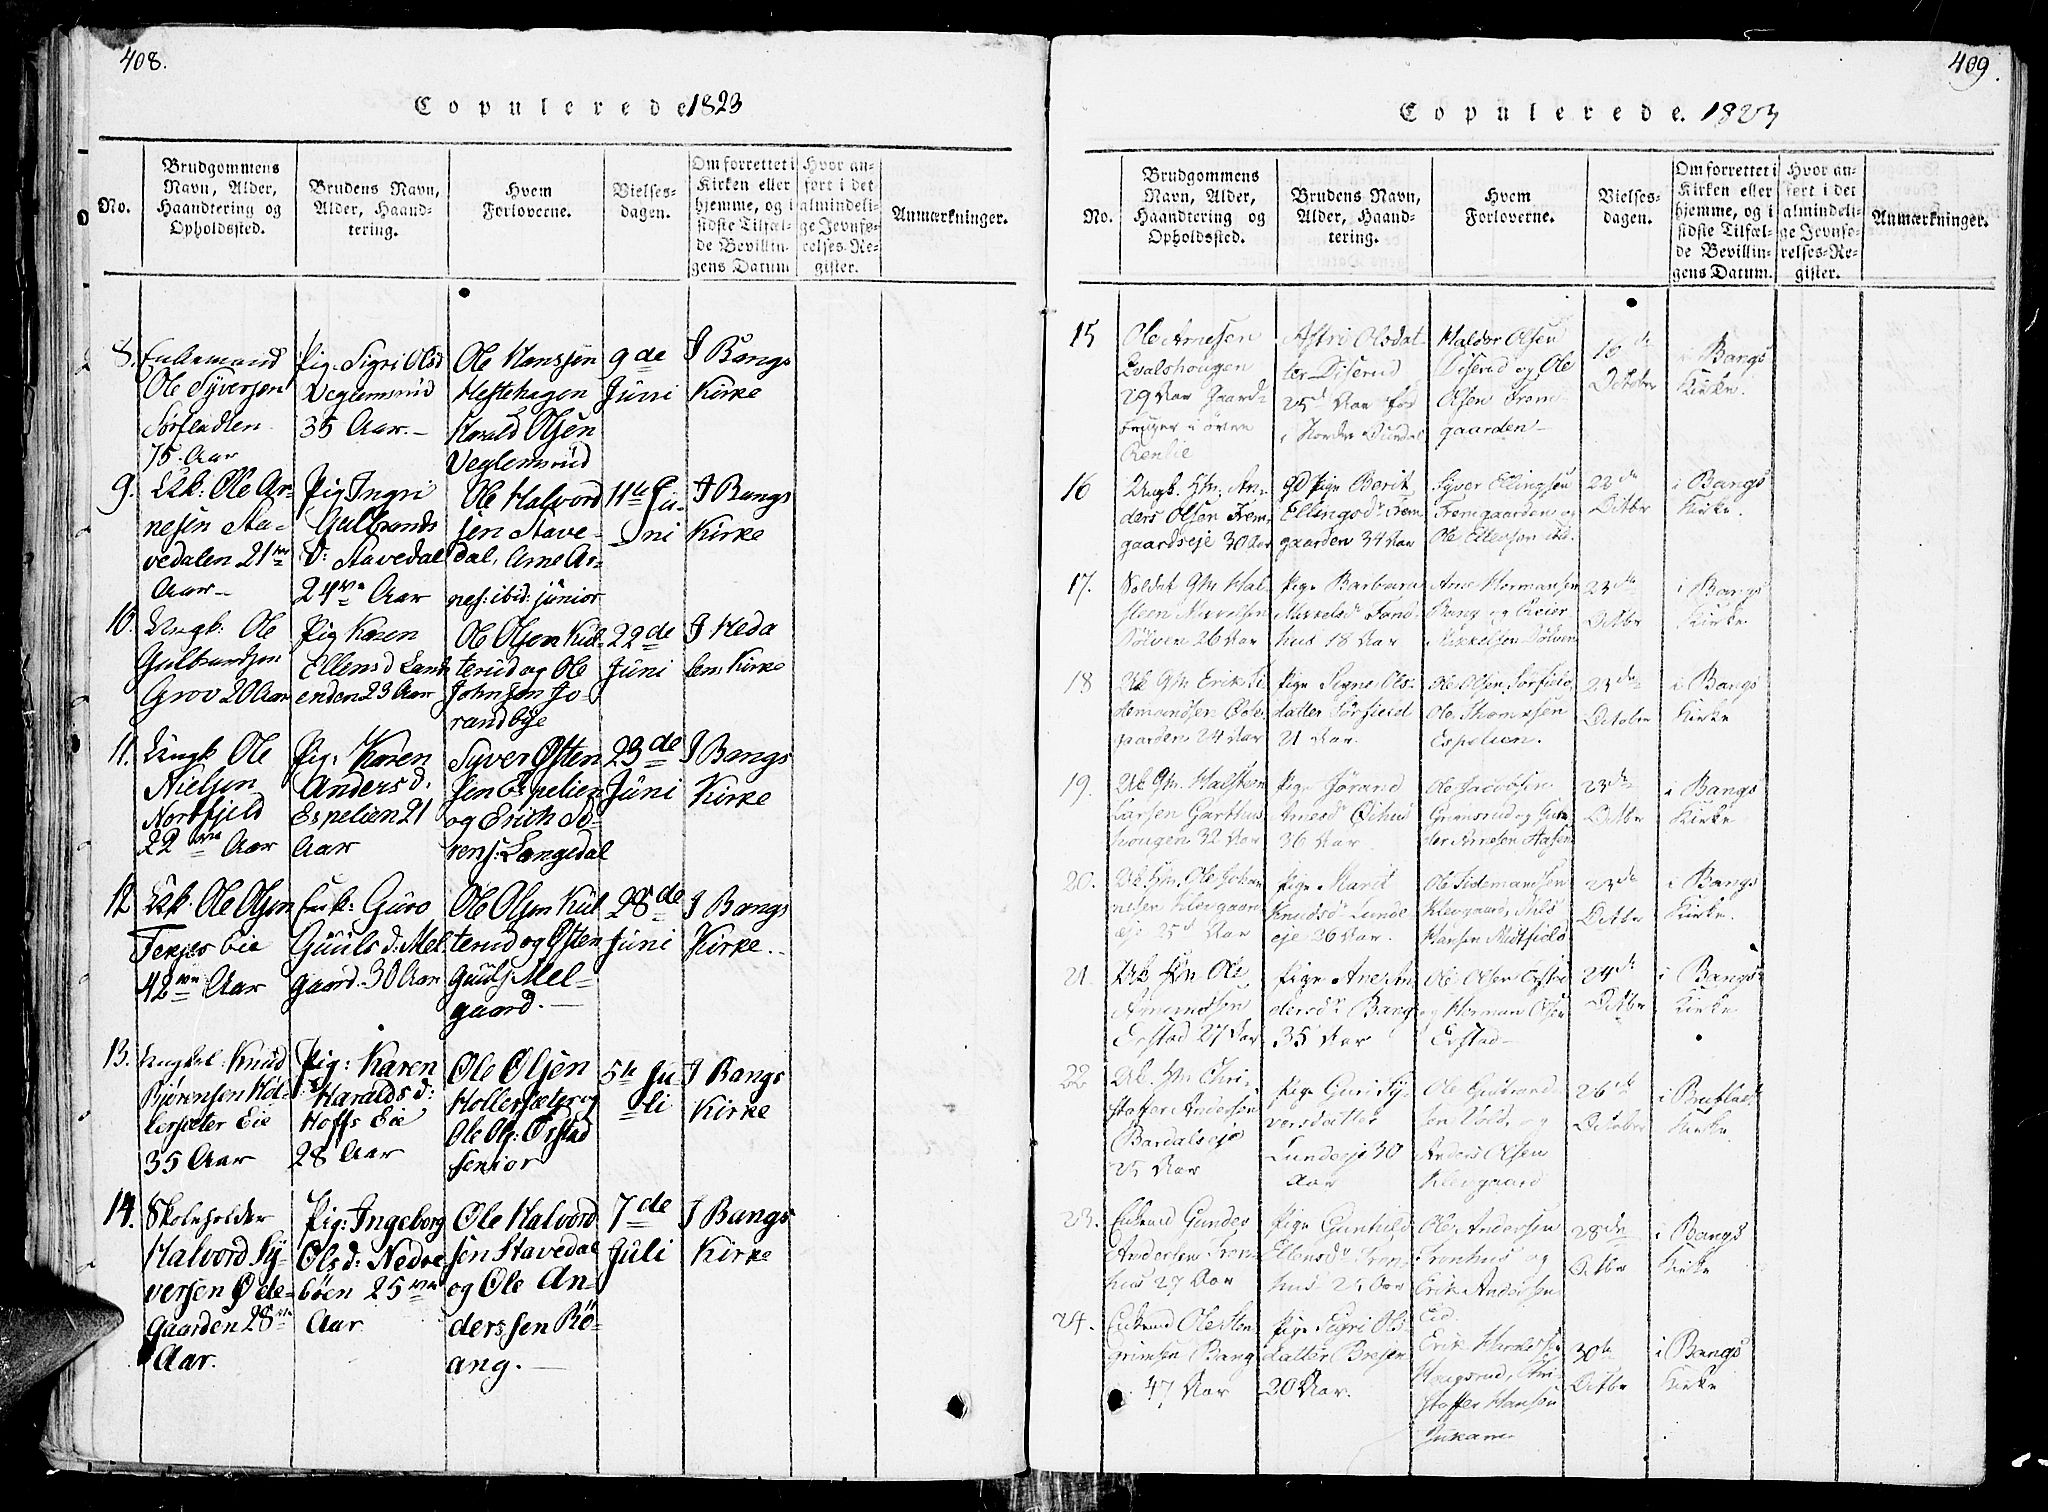 408.
Copulerede 1823
No.
Brudgommens
Navn, Alder,
Haandtering og
Opholdssted.
Brudens Navn,
Alder, Haand-
tering.
Hvem
Forloverne.
Vielses-
dagen.
Om forrettet i
Kirken eller
hjemme, og i
sidste Tilfæl-
de Bevillin-
gens Datum
Hvor an-
ført i det
almindeli-
ge Jevnfø-
relses-Re-
gister.
Anmærkninger.
8. Enkemand
Ole Syversen
75 Aar
Pig: Sigri Olsd
Veglemsrud
35 Aar.-
Ole Hanssen
Hestehagen
Harald Olsen
Veglemsrud
9de
Juni
I Bangs
Kirke
9. Ole Ar-
nesen Sta-
vedalen 21
Aar-
Pig Ingri
Gulbrands
D: Stavedal
24 Aar
Ole Halvord
sen Stave-
dal, Arne Ar-
nes: ibid: junior
11te Ju-
ni
I Bangs
Kirke
10. Ungk: Ole
Gulbrandsen
Grov 20 Aar
Pig Karen
Ellens D
enden 23 Aar
Ole Olsen Kul
terud og Ole
Johnsen Jo-
randbye
22de
Juni
I Heda
lens Kirke
11. Ungk Ole
Nielsen
Nordfjeld
22 Aar
Pig: Karen
Anders d.
Espelien 21
Aar
Syver Østen
sen Espelien
og Erich So-
rens: Langedal
23de
Juni
I Bangs
Kirke
12 Ole Olsen
eie
42 Aar
Enk: Guro
Guuls d: Mel
gaard. 30 Aar
Ole Olsen Kul
terud og Østen
Guuls Mel-
gaard.-
28de
Juni
I Bangs
Kirke.
13. Ungkl: Knud
Bjørensen Hol-
lersæter Eie
35 Aar
Pig: Karen
Haralds d:
Hoffs Eie
28 Aar
Ole Olsen
Hollersæter og
Ole Ols: Ørstad
senior
5te Ju
li
I Bangs
Kirke
14. Skoleholder
Halvord Sy-
versen Øde-
gaarden 28
Aar.
Pig: Ingeborg
Ols d: Nedre
böen 25
Aar
Ole Halvord
sen Stavedal
og Ole An-
derssen Rö-
ang.-
7de
Juli
I Bangs
Kirke
409.
Copulerede. 1823
No.
Brudgommens
Navn, Alder,
Haandtering og
Opholdssted.
Brudens Navn,
Alder, Haand-
tering.
Hvem
Forloverne.
Vielses-
dagen.
Om forrettet i
Kirken eller
hjemme, og i
sidste Tilfæl-
de Bevillin-
gens Datum.
Hvor an-
ført i det
almindeli-
ge Jevnfø-
relses-Re-
gister.
Anmærkninger.
15 Ole Arnesen
29 Aar Gaard-
bruger i øvre
Renlie
Astri Olsdat-
ter Diserud
25 Aar
Haldor Olsen
Diserud og Ole
Olsen From
gaarden-
October
i Bangs
Kirke.
16 Ungk. An-
ders Olsen Frem-
gaardseje 30 Aar
Pige Berit
Ellingsdr
gaarden 34 Aar
Syver Ellingsen
Fremgaarden og
Ole Ellevsen ibd.
22de
Octbr
i Bangs
Kirke.
17. Soldat Hal
steen
Dølven 26 Aar
Pige Barbara
Mikkelsd
hus 18 Aar
Arne Hermansen
Bang og
Mikkelsen Dølven
23de
Octbr
i Bangs
Kirke
18 Erik Ti
demandsen Øde
gaarden 24 Aar
Pige Signe Ols-
datter Sørfield
21 Aar.
Ole Olsen Sørfield,
Ole Thomesen
Espelien.
23de
October
i Bangs
Kirke
19. Halsteen
Larsen Garthus
hougen 32 Aar
Pige Jørand
Arnesd
36 Aar
Ole Jacobsen
Grønsrud og Gun
der Arnesen
23de
Octbr
i Bangs
Kirke
20. Ole Johan
nesen Klevgaar
eje 25 Aar
Pige Marit
Knudsdr Lunde
eje 26 Aar.
Ole Tidemandsen
Klevgaard, Nels
Hansen Midtfield
23de
Octbr
i Bangs
Kirke.
21. Ole
Amundsen
Erstad 27 Aar
Pige Ane An
dersdr Bang
35 Aar
Ole Olsen
og Herman Olsen
Erstad-
24de
Octbr
i Bangs
Kirke
22 Chri-
stoffer Andersen
Bardalseje
25 Aar
Pige Guri Sy-
versdatter
Lundeeje 30
Aar
Ole Gulbrand
sen Vold, og
Anders Olsen
Klevgaard
26de
October
i
Kirke
23. Enkemd Gunder
Andersen Tron
hus 27 Aar
Pige Gunhild
Ellensdr Tron
hus 25 Aar
Ole Andersen
Tronhus og
Erik Andersen
Eid.
28de
Octbr
i Bangs
Kirke
24. Enkemd Ole
grimsen Bang
47 Aar
Pige Sigri Ols
datter Bresen
20 Aar.
Erik
Chri-
stoffer Hansen
30te
Octbr
i Bangs
Kirke